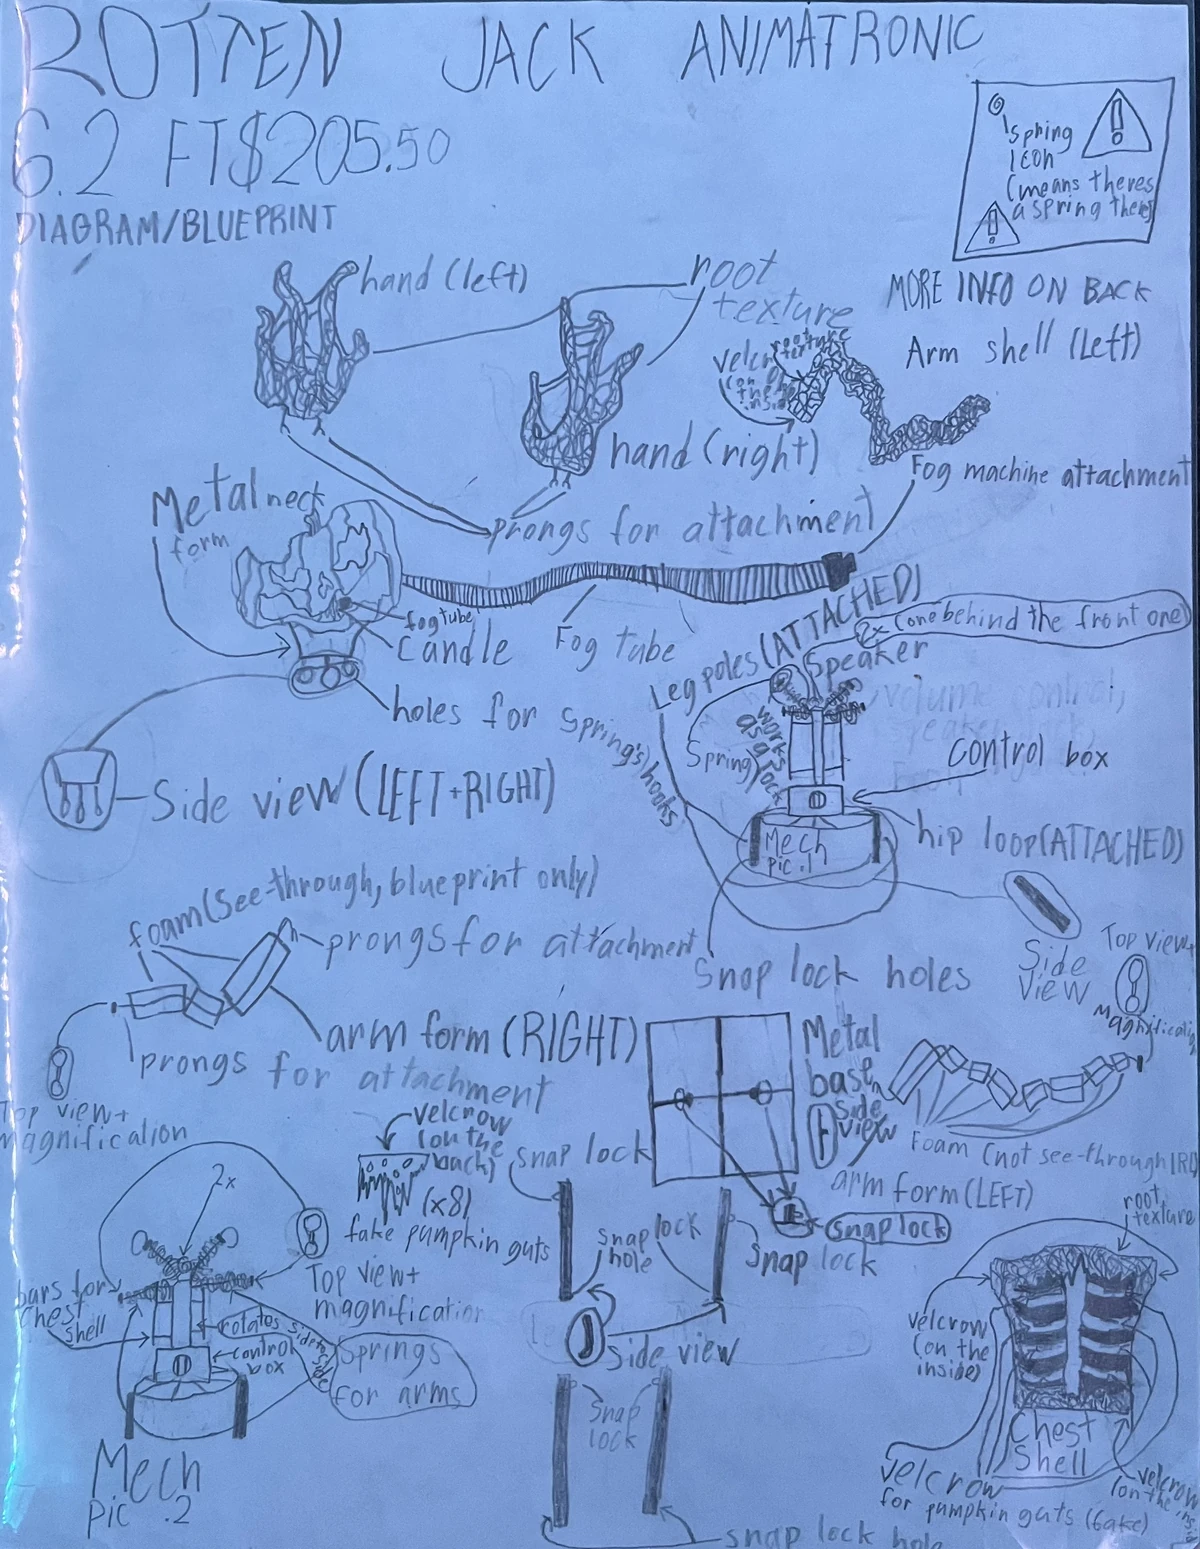 ROTTEN JACK ANIMATRONIC
6.2 FT $205.50
DIAGRAM/BLUEPRINT
spring
icon
(means theres
a spring there)
MORE INFO ON BACK
hand (left)
root
texture
Arm shell (Left)
root
texture
velcro
(on
the
inside)
hand (right)
Fog machine attachment
prongs for attachment
Metal neck
form
fog tube
Candle
Fog tube
holes for springs/hooks
Side view (LEFT+RIGHT)
Leg poles (ATTACHED)
2x (one behind the front one)
Speaker
volume control,
Spring
works
as a lock
control box
hip loop (ATTACHED)
Mech
pic .1
Snap lock holes
Side
view
foam (See-through, blueprint only)
prongs for attachment
arm form (RIGHT)
prongs for attachment
Top view+
magnification
Top view+
magnification
Metal
base
side
view
Foam (not see-through IRL)
arm form (LEFT)
velcrow
(on the
back)
(x8)
fake pumpkin guts
snap lock
snap
hole
snap lock
snap lock
snap lock
side view
snap
lock
snap lock hole
2x
Top view+
magnification
bars for
chest
shell
rotates side to side
control
box
Springs
for arms
Mech
pic .2
root
texture
velcrow
(on the
inside)
Chest
Shell
velcrow
for pumpkin guts (fake)
velcrow
(on the inside)